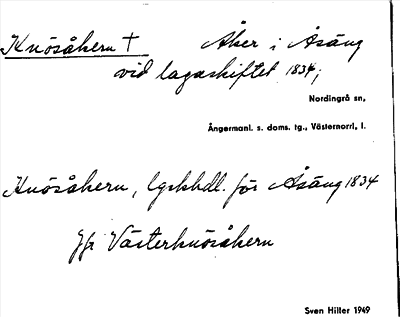 Knösåkern † Åker i Åsäng
vid lagaskiftet 1834;
Nordingrå sn,
Ångermanl. s. doms. tg., Västernorrl, l.
Knösåkern, lgskhdl. för Åsäng 1834
Jfr Västerknösåkern
Sven Hiller 1949